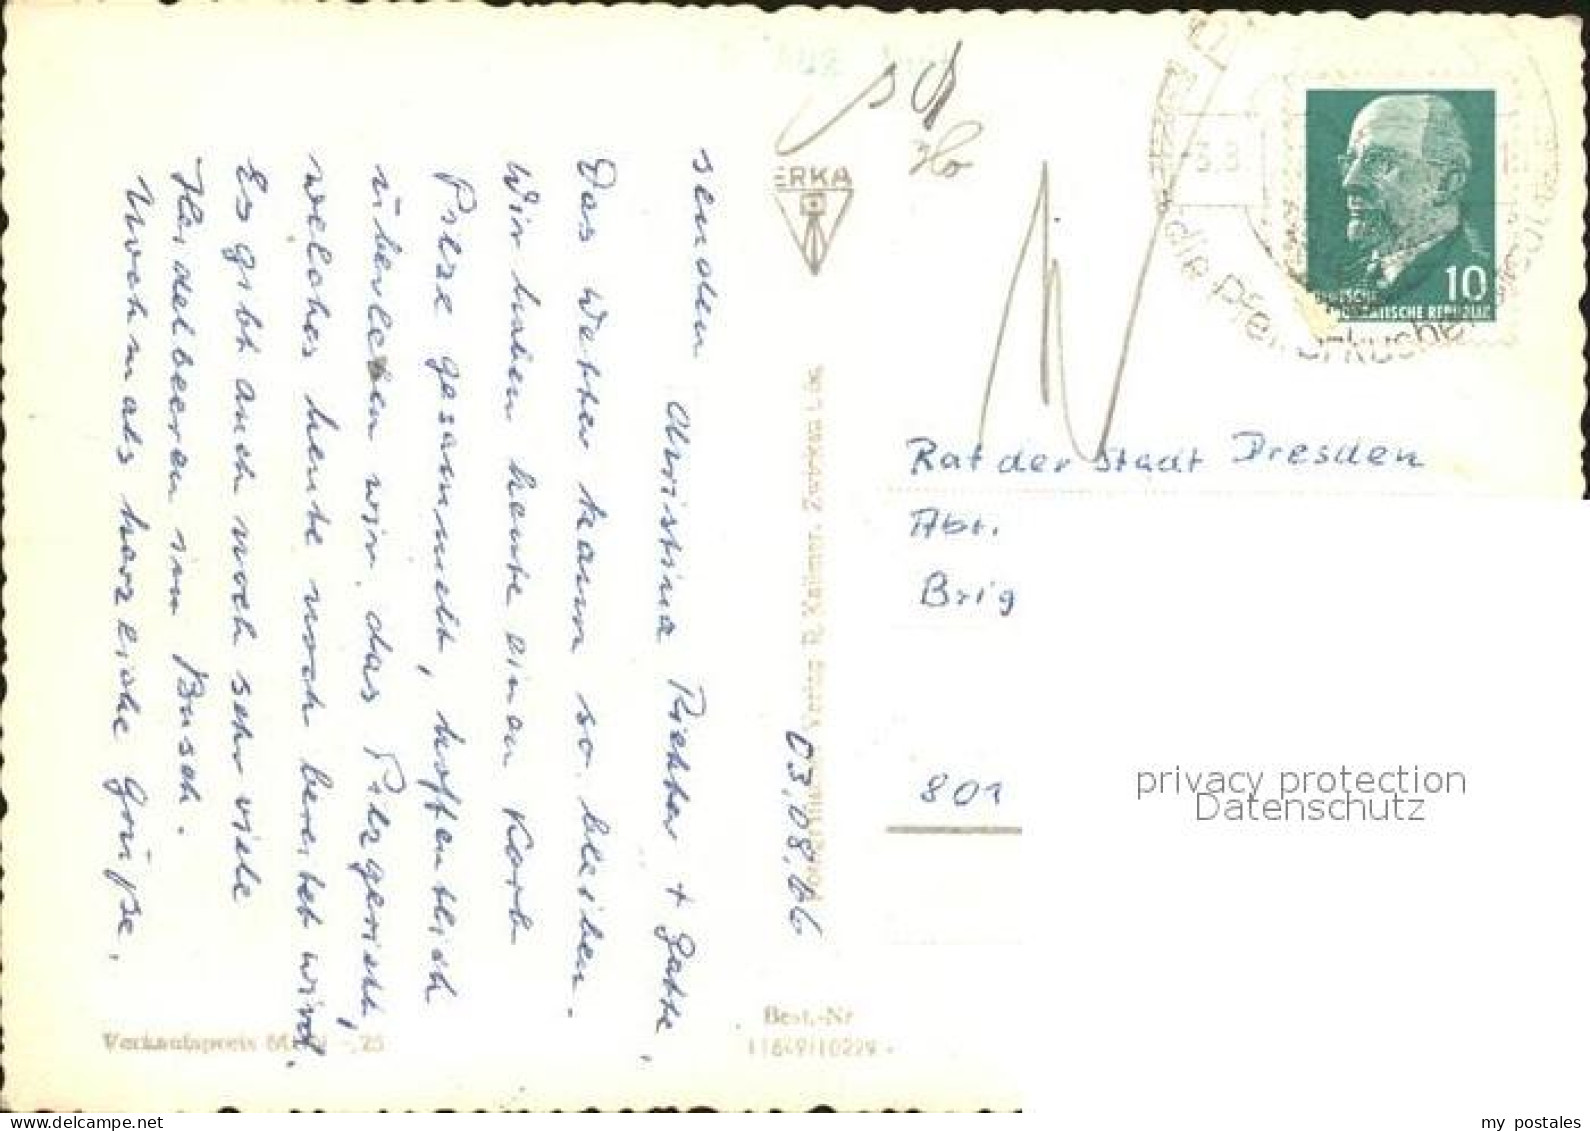 senden
Christina Richter + Gatte,
Das Wetter kann so bleiben.
Wir haben heute einen Korb
Pilze gesammelt, hoffentlich
überleben wir das Pilzgericht,
welches heute noch bereitet wird.
Es gibt auch noch sehr viele
Heidelbeeren im Busch.
Nochmals herzliche Grüße.
Verkaufspreis MDN -,25
ERKA
03.08.66
Verlag R. Kallmer, Zwickau
Best.-Nr
11649/10229
3.8.
die Pfefferkuchen
10
DEUTSCHE
DEMOKRATISCHE REPUBLIK
Rat der Stadt Dresden
Abt.
Brig
801
privacy protection
Datenschutz
my postales